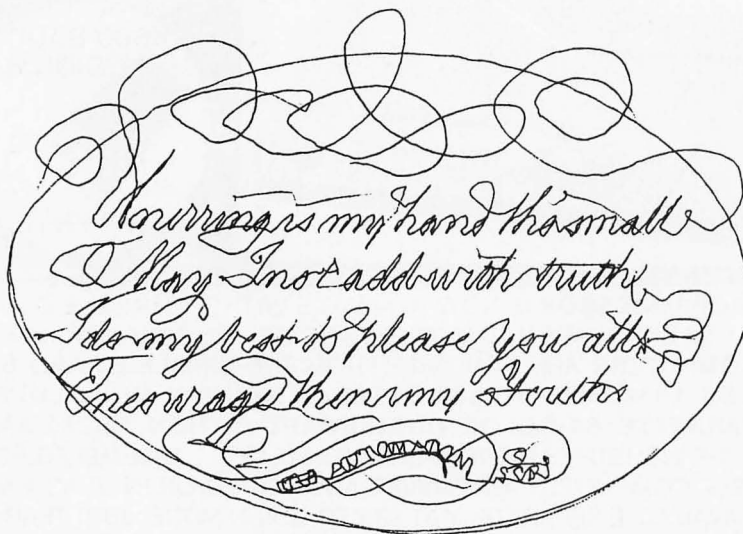 Unerring is my hand tho small
May I not add with truth
I do my best to please you all
Encourage then my Youth